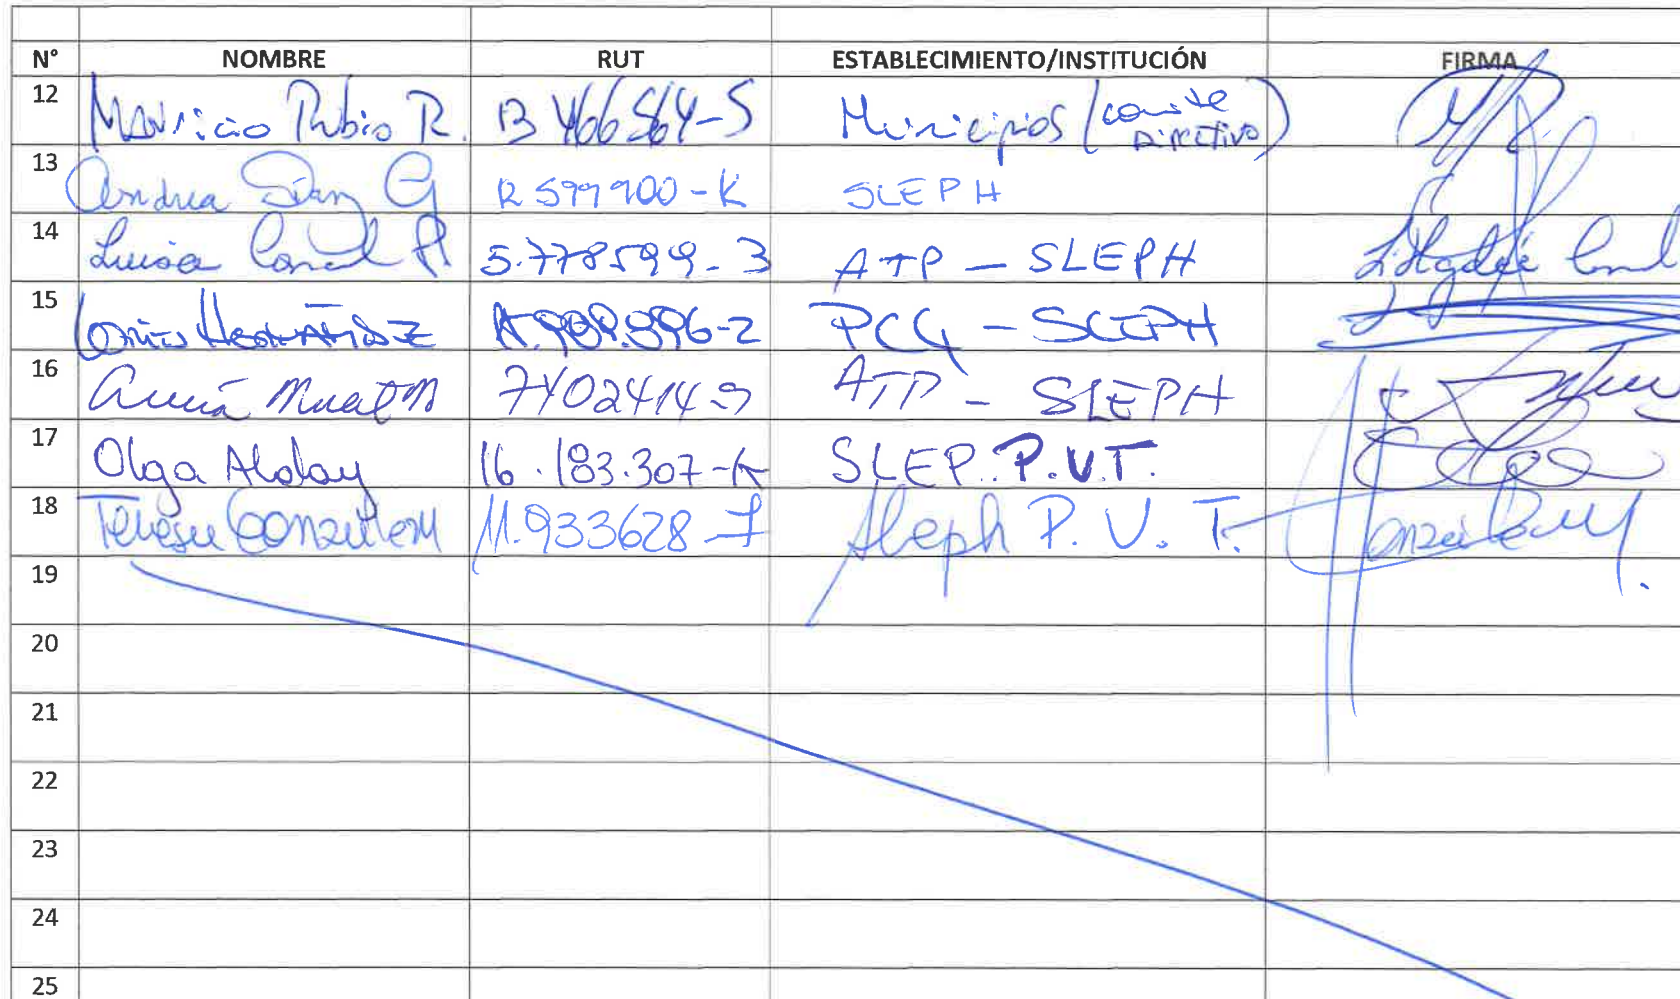 N° NOMBRE RUT ESTABLECIMIENTO/INSTITUCIÓN FIRMA
12 Mauricio Rubio R. 13466564-5 Municipios (comite Directivo)
13 Andrea G 12599900-K SLEPH
14 Luisa P 5.778599-3 ATP - SLEPH
15 Hernández - SLEPH
16 7402414-9 ATP - SLEPH
17 Olga Alday 16.183.307-K SLEP P.V.T.
18 Teresa Gonzalez M 11.933628-7 Sleph P. V. T.
19
20
21
22
23
24
25